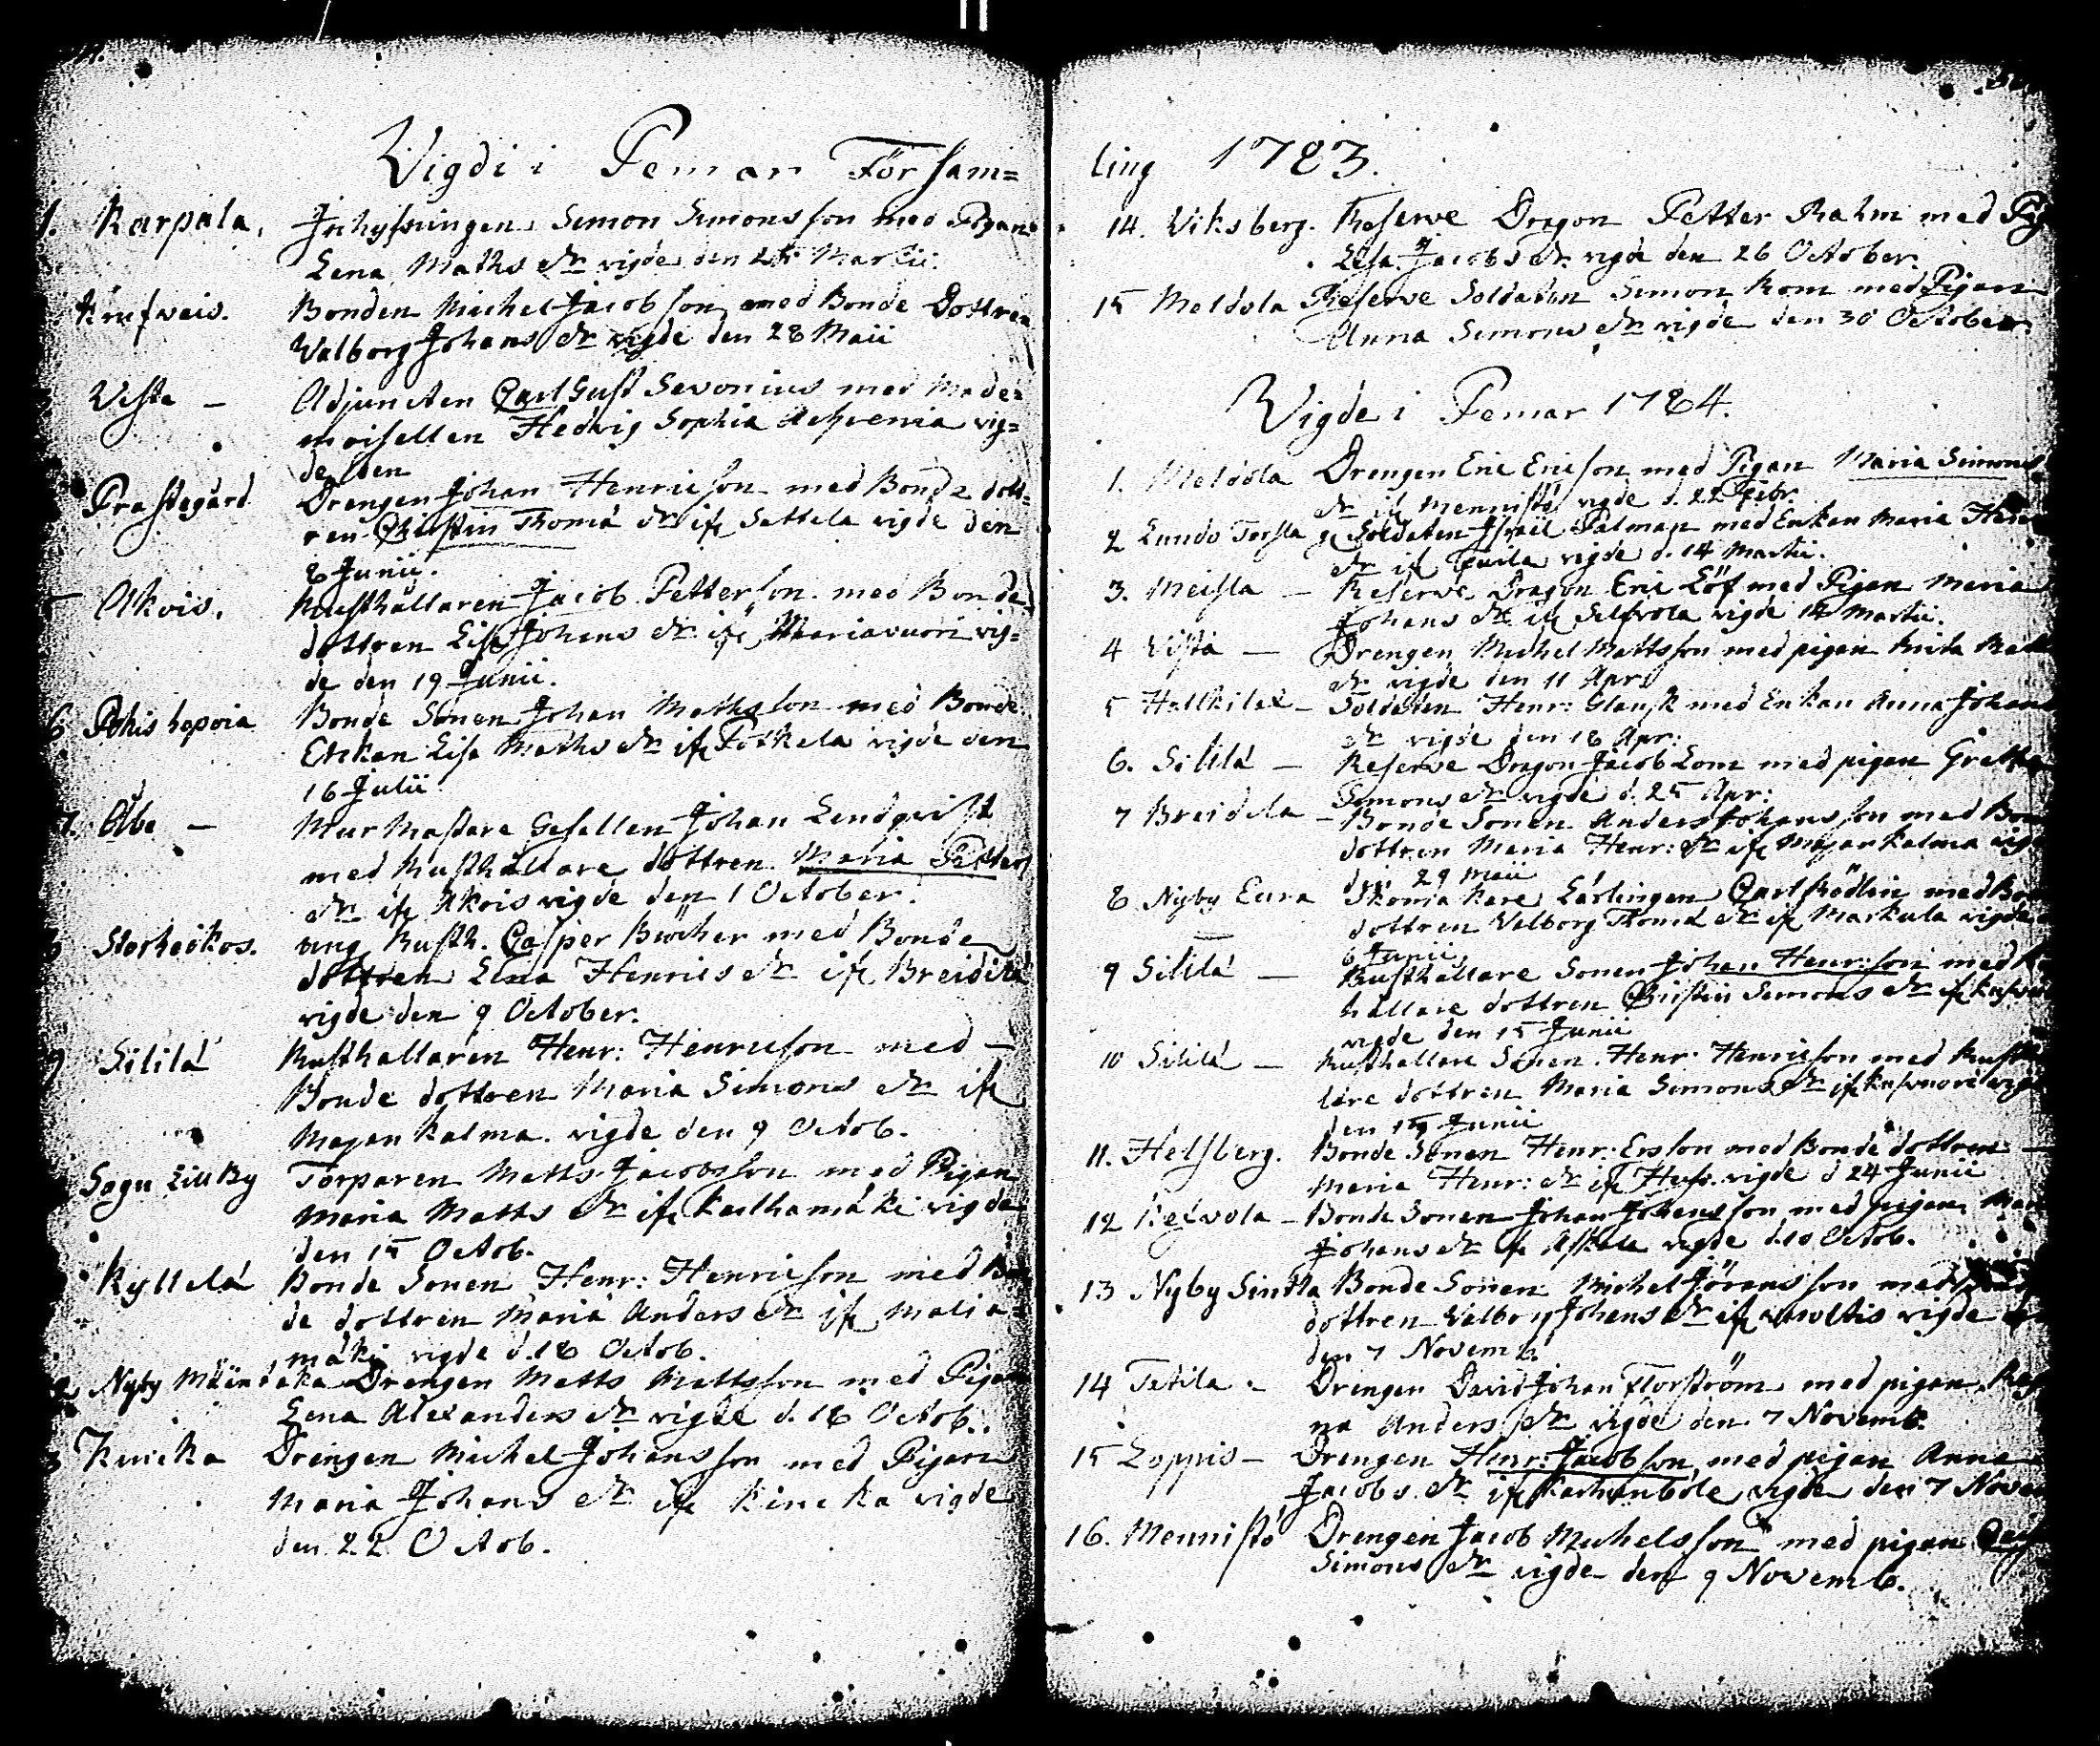 Vigdi i Pemar Församₓ
1. Karpala. Inhysningen Simon Simonsson med Pigan
Lena Maths dr vigde den 25 Martii.
Krufvais. Bonden Michel Jacobsson med Bonde Dottren
Valborg Johans dr vigde den 28 Maii
Vista — Adjuncten Carl Gust Savonius med Made=
moisellen Hedvig Sophia vig=
de den
Prästegård Drengen Johan Henricson med Bonde dott=
ren Christin Thomæ dr ifr Sattela vigde den
8 Junii.
5 Akois. Rusthållaren Jacob Petterson med Bonde
dottren Lisa Johans dr ifr Maariavuori vig=
de den 19 Junii.
6 Pohis lepoia Bonde Sonen Johan Mathsson med Bonde
Enkan Lisa Maths dr ifr Potkela vigde den
16 Julii
7. Åbo — Mur Mästare Gesellen Johan Lendqvist
med Rusthållare dottren Maria Petters
dr ifr Akois vigde den 1 October.
Storheikos. ung Rusth. Casper Büscher med Bonde
dottren Lena Henrics dr ifr Breidilä
vigde den 9 October.
9 Sililä Rusthållaren Henr: Henricson med —
Bonde dottren Maria Simons dr ifr
Majankalma. vigde den 9 Octob.
Sagu Lillby Torparen Matts Jacobsson med Pigan
Maria Matts dr ifr Karlhamäki vigde
den 15 Octob.
Kyttelä Bonde Sonen Henr: Henricson med Bon
de dottren Maria Anders dr ifr Malia=
mäki vigde d. 18 Octob.
Nyby Drengen Matts Mattsson med Pigan
Lena Alexanders dr vigde d. 18 Octob.
Kurcka Drengen Michel Johansson med Pigan
Maria Johans dr ifr vigde
den 22 Octob.
ling 1783.
14. Viksberg. Reserve Dragon Petter Rahm med Pig
Lisa Jacobs dr. vigd den 26 October.
15 Meldola Reserve Soldaten Simon Rom med Pigan
Anna Simons dr vigde den 30 October.
Vigde i Pemar 1784.
1. Meldola Drengen Eric Ericson med Pigan Maria Simons
dr ifr Mennistö vigde d. 22 Febr.
2 Lundo Torsla Soldaten Israel Palman med Enkan Maria
dr ifr vigde d. 14 Martii.
3. Meisla — Reserve Dragon Eric Löf med Pigan Maria
Johans dr ifr vigde 14 Martii.
4 Vista — Drengen Michel Mattsson med pigan
dr vigde den 11 Apr:
5 Hallkilax — Soldaten Henr: Glansk med Enkan Anna Johans
dr vigde den 18 Apr:
6. Sililä — Reserve Dragon Jacob Lom med pigan Gretta
Simons dr vigde d. 25 Apr:
7 Breidila — Bonde Sonen Anders Johansson med
dottren Maria Henr: dr ifr Majankalma
den 29 Maii
8 Nyby Eura Skomakare Lärlingen Carl Rödlin med
dottren Valborg Thomæ dr ifr Markula vigde
6 Junii
9 Sililä — Rusthållare Sonen Johan Henr:son med
hållare dottren Christin Simons dr ifr
vigde den 15 Junii
10 Sililä — Rusthållare Sonen Henr: Henricson med
lare dottren Maria Simons dr ifr
den 15 Junii
11. Helsberg. Bonde Sonen Henr: Ersson med Bonde dottren —
Maria Henr: dr ifr vigde d 24 Junii
12 Kexvola — Bonde Sonen Johan Johansson med pigan
Johans dr ifr vigde d. 10 Octob.
13 Nyby Bonde Sonen Michel Jöransson med
dottren Valborg Johans dr ifr vigde
den 7 Novemb.
14 Tadila — Drengen David Johan Florström med pigan
na Anders dr vigde den 7 Novemb.
15 Loppis — Drengen Henr: Jacobson med pigan Anna
Jacobs dr ifr vigde den 7
16. Mennistö Drengen Jacob Michelsson med pigan
Simons dr vigde den 9 Novemb.